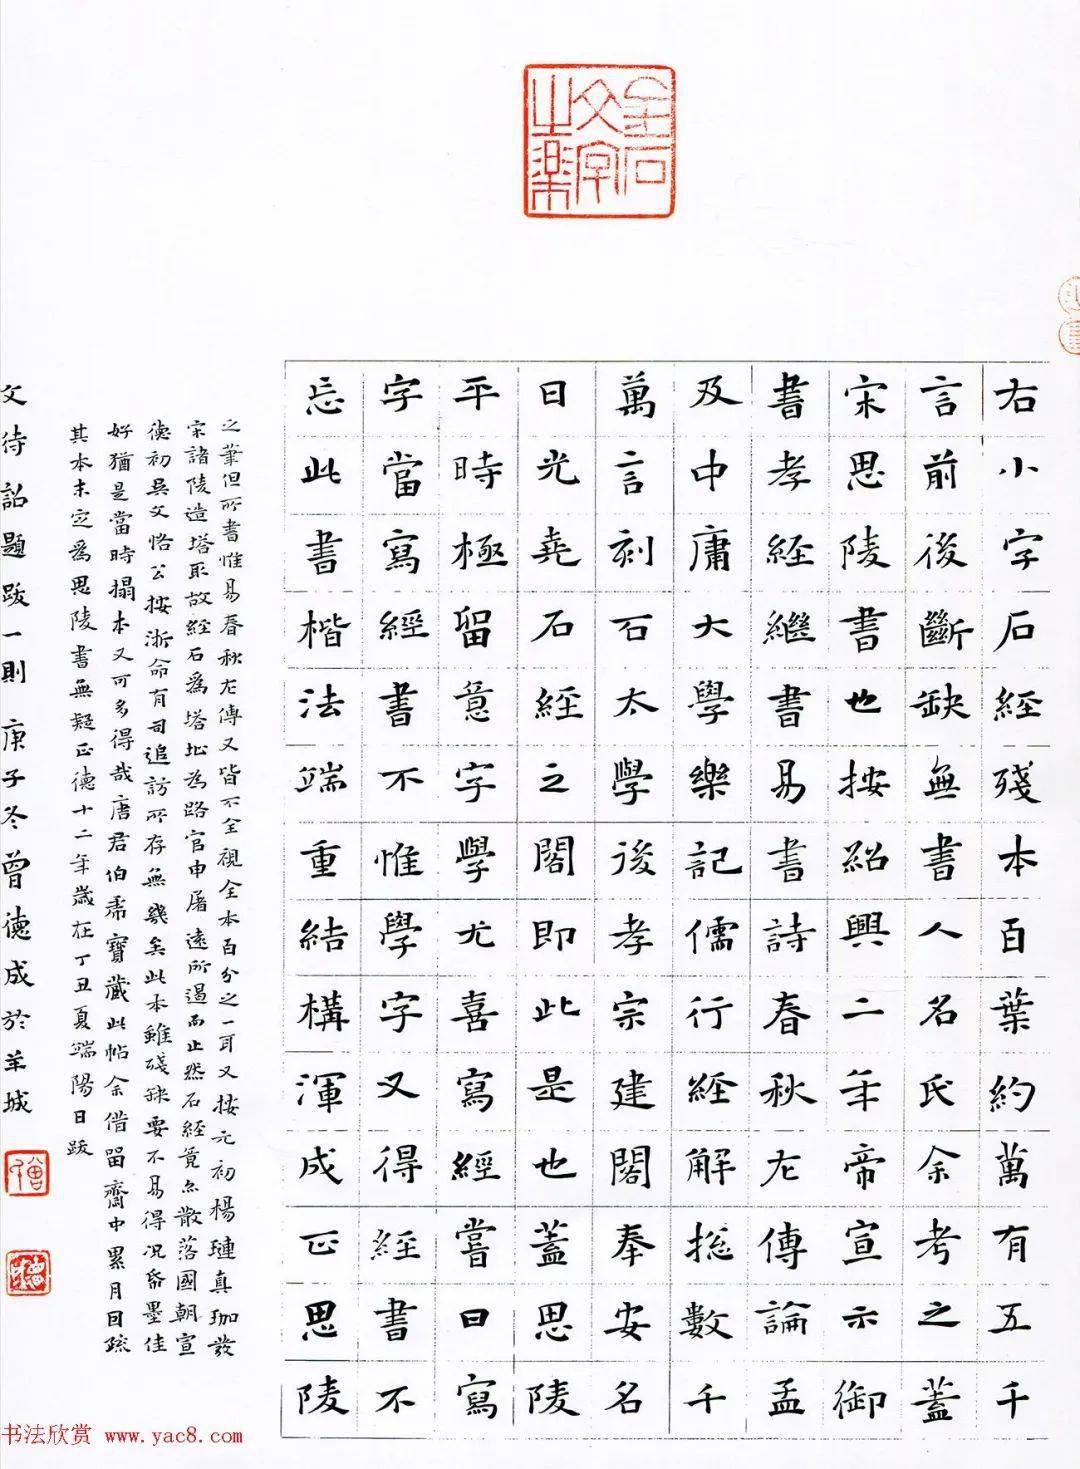 金石
文字
之樂
右小字石經殘本百葉約萬有五千
言前後斷缺無書人名氏余考之蓋
宋思陵書也按紹興二年帝宣示御
書孝經繼書易書詩春秋左傳論孟
及中庸大學樂記儒行經解捴數千
萬言刻石太學後孝宗建閣奉安名
日光堯石經之閣即此是也蓋思陵
平時極留意字學尤喜寫經嘗曰寫
字當寫經書不惟學字又得經書不
忘此書楷法端重結構渾成正思陵
之筆但所書惟易春秋左傳又皆不全視全本百分之一耳又按元初楊璉真珈發
宋諸陵造塔取故經石為塔址為路官申屠遠所遏而止然石經竟亦散落國朝宣
德初吳文恪公按浙命有司追訪所存無幾矣此本雖殘缺要不易得況紙墨佳
好猶是當時搨本又可多得哉唐君伯虎寶藏此帖余借留齋中累月因疏
其本末定為思陵書無疑正德十二年歲在丁丑夏端陽日跋
文待詔題跋一則 庚子冬曾德成於羊城
曾
书法欣赏 www.yac8.com